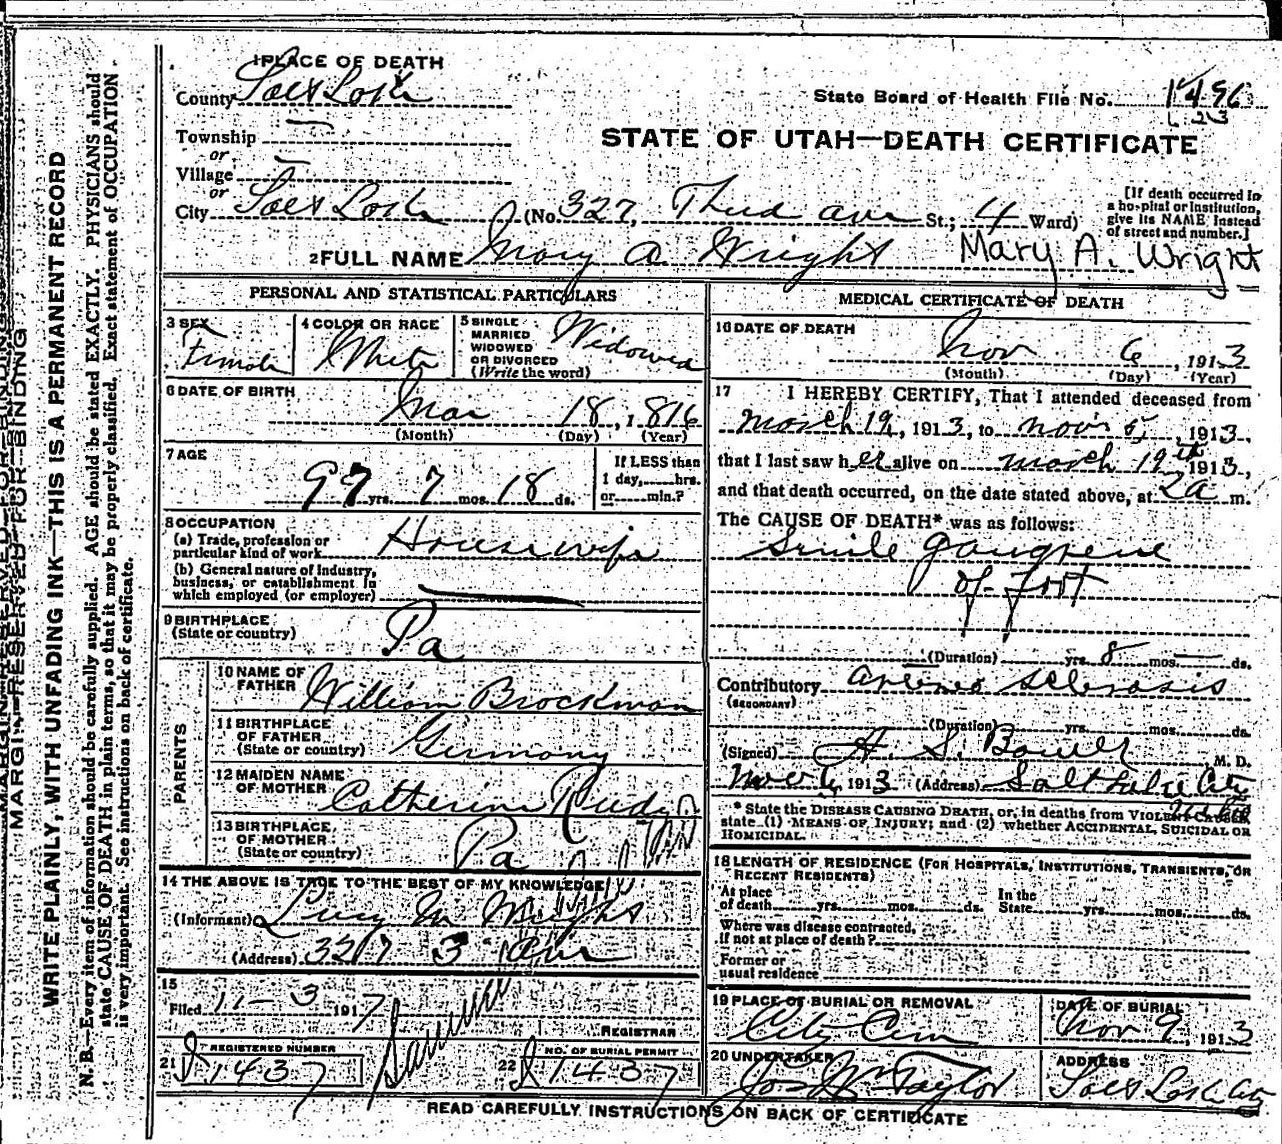 MARGIN RESERVED FOR BINDING
WRITE PLAINLY, WITH UNFADING INK—THIS IS A PERMANENT RECORD
N. B.—Every item of information should be carefully supplied. AGE should be stated EXACTLY. PHYSICIANS should
state CAUSE OF DEATH in plain terms, so that it may be properly classified. Exact statement of OCCUPATION
is very important. See instructions on back of certificate.
1 PLACE OF DEATH
County Salt Lake
State Board of Health File No.
Township —
or
STATE OF UTAH—DEATH CERTIFICATE
Village —
or
City Salt Lake (No. 327, Third ave St.; 4 Ward)
[If death occurred in
a hospital or institution,
give its NAME instead
of street and number.]
2 FULL NAME Mary A Wright Mary A. Wright
PERSONAL AND STATISTICAL PARTICULARS
3 SEX Female
4 COLOR OR RACE White
5 SINGLE
MARRIED
WIDOWED
OR DIVORCED
(Write the word)
Widowed
6 DATE OF BIRTH
Mar 18, 1816
(Month) (Day) (Year)
7 AGE
97 yrs. 7 mos. 18 ds.
If LESS than
1 day, hrs.
or min.?
8 OCCUPATION
(a) Trade, profession or
particular kind of work Housewife
(b) General nature of industry,
business, or establishment in
which employed (or employer) —
9 BIRTHPLACE
(State or country) Pa
PARENTS
10 NAME OF
FATHER William Brockman
11 BIRTHPLACE
OF FATHER
(State or country) Germany
12 MAIDEN NAME
OF MOTHER Catherine Rudy
13 BIRTHPLACE
OF MOTHER
(State or country) Pa
14 THE ABOVE IS TRUE TO THE BEST OF MY KNOWLEDGE
(Informant) Lucy M Wright
(Address) 327 3 Ave
15
Filed 11-3 1917
REGISTRAR
21 REGISTERED NUMBER
1437
22 NO. OF BURIAL PERMIT
1437
MEDICAL CERTIFICATE OF DEATH
16 DATE OF DEATH
Nov 6, 1913
(Month) (Day) (Year)
17 I HEREBY CERTIFY, That I attended deceased from
March 19, 1913, to Nov 5, 1913,
that I last saw her alive on March 19th 1913,
and that death occurred, on the date stated above, at 2a m.
The CAUSE OF DEATH* was as follows:
Senile Gangrene
of foot
(Duration) yrs. 8 mos. — ds.
Contributory Arterio sclerosis
(SECONDARY)
(Duration) yrs. mos. ds.
(Signed) A. S. Bower, M. D.
Nov 6, 1913 (Address) Salt Lake City
* State the DISEASE CAUSING DEATH, or, in deaths from VIOLENT CAUSES
state (1) MEANS OF INJURY; and (2) whether ACCIDENTAL, SUICIDAL OR
HOMICIDAL.
18 LENGTH OF RESIDENCE (FOR HOSPITALS, INSTITUTIONS, TRANSIENTS, OR
RECENT RESIDENTS)
At place
of death yrs. mos. ds.
In the
State yrs. mos. ds.
Where was disease contracted,
if not at place of death?
Former or
usual residence
19 PLACE OF BURIAL OR REMOVAL
City Cem
DATE OF BURIAL
Nov 9, 1913
20 UNDERTAKER
Jos Wm Taylor
ADDRESS
Salt Lake City
READ CAREFULLY INSTRUCTIONS ON BACK OF CERTIFICATE